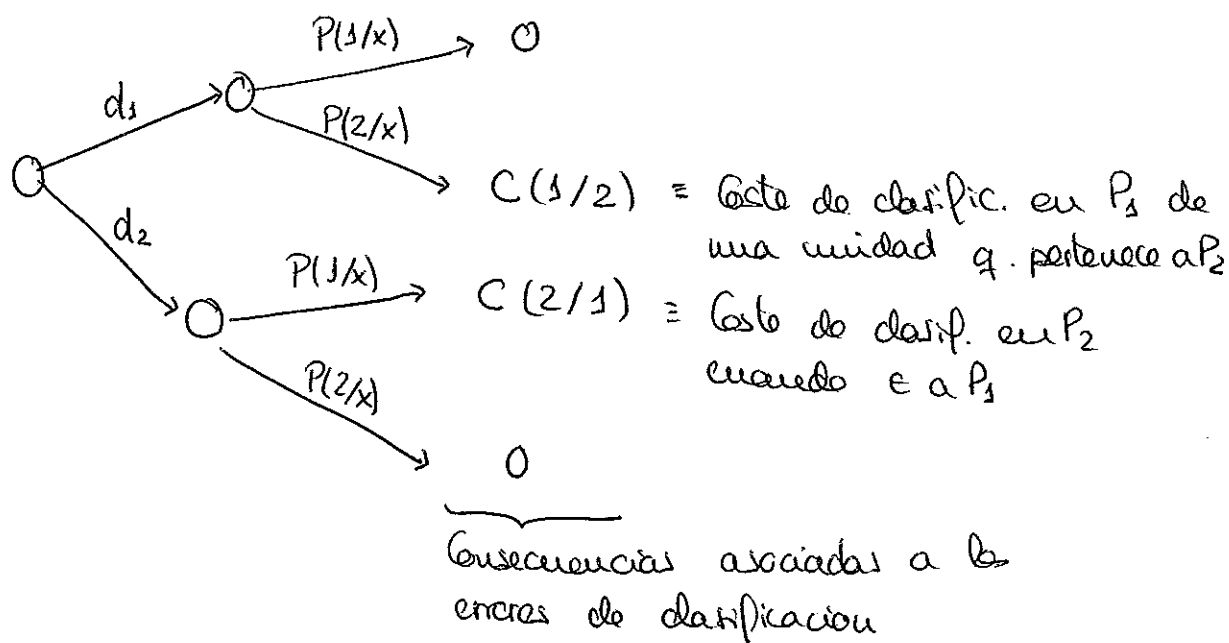 P(1/x)
0
d1
P(2/x)
C(1/2) ≡ Coste de clasific. en P1 de
una unidad q. pertenece a P2
d2
P(1/x)
C(2/1) ≡ Coste de clasif. en P2
cuando ∈ a P1
P(2/x)
0
Consecuencias asociadas a los
errores de clasificacion